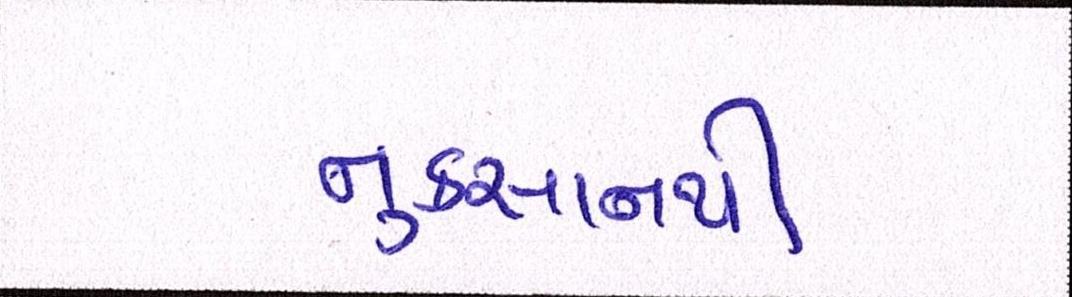 નુકસાનથી